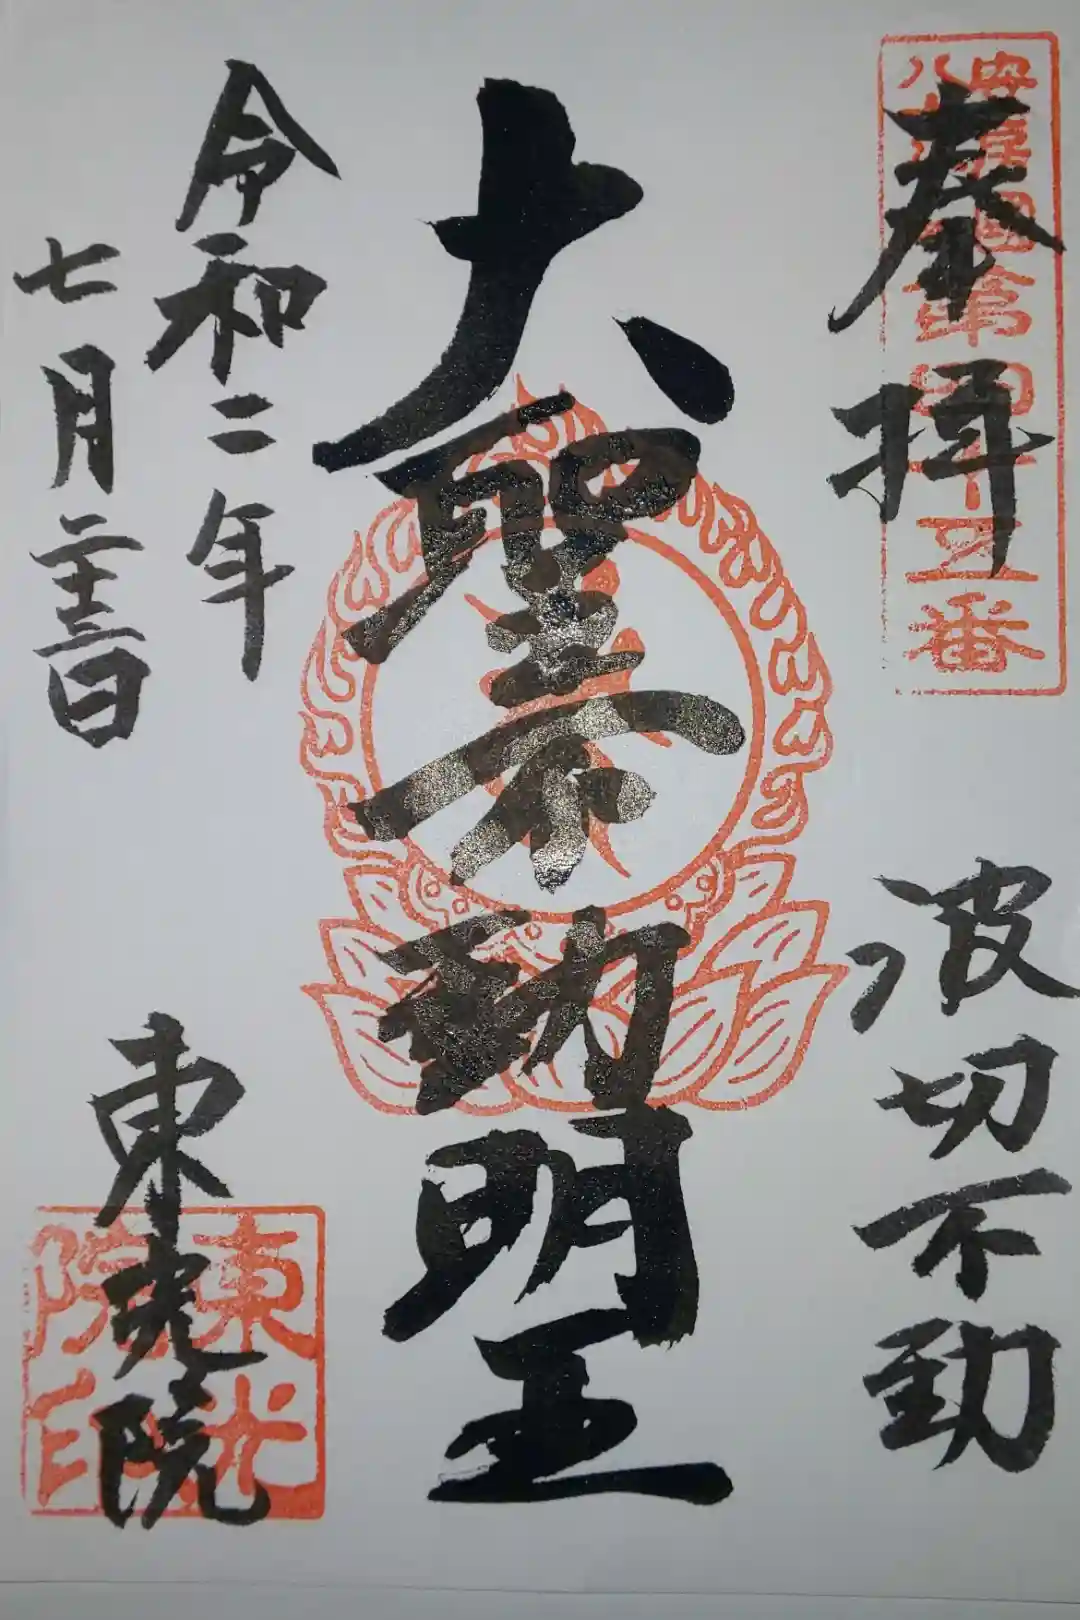 奉拝
安房國第四十五番
八
波切不動
大聖不動明王
令和二年
七月二十三日
東光院
東光
院印